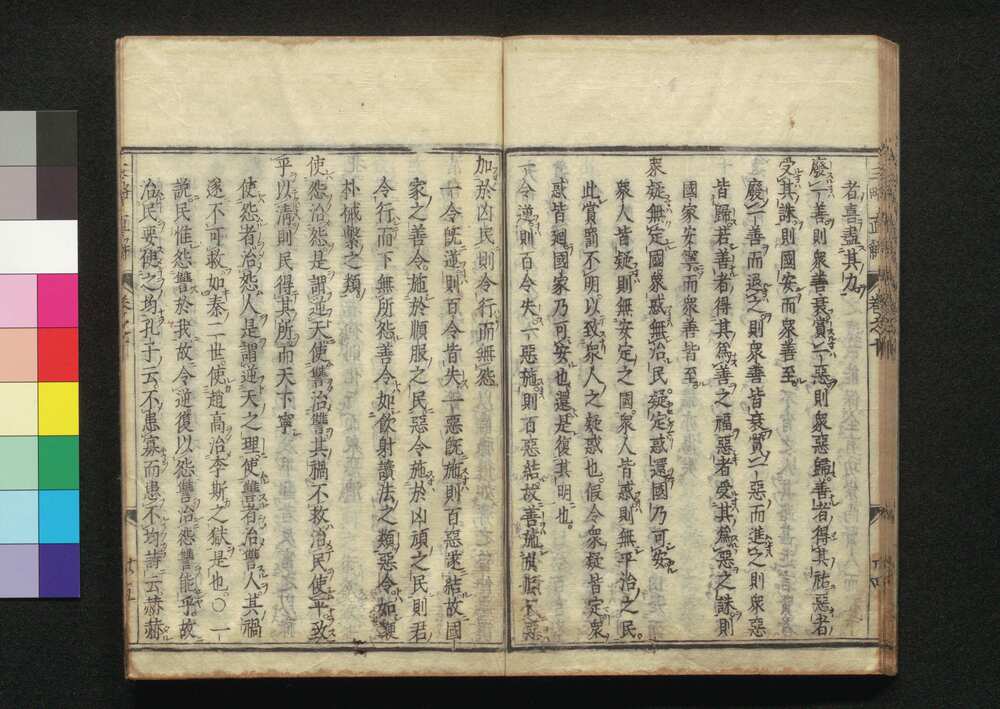 者喜盡其力
廢一善則衆善衰賞一惡則衆惡歸善者得其祐惡者
受其誅則國安而衆善至
廢一善而退之則衆善皆衰賞一惡而進之則衆惡
皆歸若善者得其爲善之福惡者受其爲惡之誅則
國家安寧而衆善皆至
衆疑無定國衆惑無治民疑定惑還國乃可安
衆人皆疑則無安定之國衆人皆惑則無平治之民
此賞罰不明以致衆人之疑惑也假令衆疑皆定衆
惑皆廻國家乃可安也還是復其明也
一令逆則百令失一惡施則百惡結故善施於順下
加於凶民則令行而無怨
一令既逆則百令皆失一惡既施則百惡遂結故國
家之善令施於順服之民惡令施於凶頑之民則君
令行而下無所怨善令如飲射讀法之類惡令如鞭
朴械繫之類
使怨治怨是謂逆天使讐治讐其禍不救治民使平致
平以清則民得其所而天下寧
使怨者治怨人是謂逆天之理使讐者治讐人其禍
遂不可救如秦二世使趙高治李斯之獄是也○一
說民惟怨讐於我故令逆復以怨讐治怨讐能乎故
治民要使之均孔子云不患寡而患不均詩云赫赫